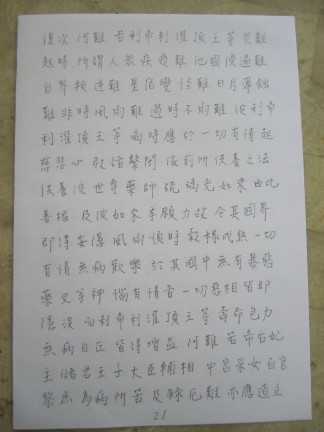 復次阿難若刹帝利灌頂王等災難
起時所謂人眾疾疫難他國侵逼難
自界叛逆難星宿變怪難日月薄蝕
難非時風雨難過時不雨難彼刹帝
利灌頂王等爾時應於一切有情起
慈悲心赦諸繫閉依前所說供養之法
供養彼世尊藥師琉璃光如來由此
善根及彼如來本願力故令其國界
即得安隱風雨順時穀稼成熟一切
有情無病歡樂於其國中無有暴惡
藥叉等神惱有情者一切惡相皆即
隱沒而刹帝利灌頂王等壽命色力
無病自在皆得增益阿難若帝后妃
主儲君王子大臣輔相中宮采女百官
黎庶為病所苦及餘厄難亦應造立
21